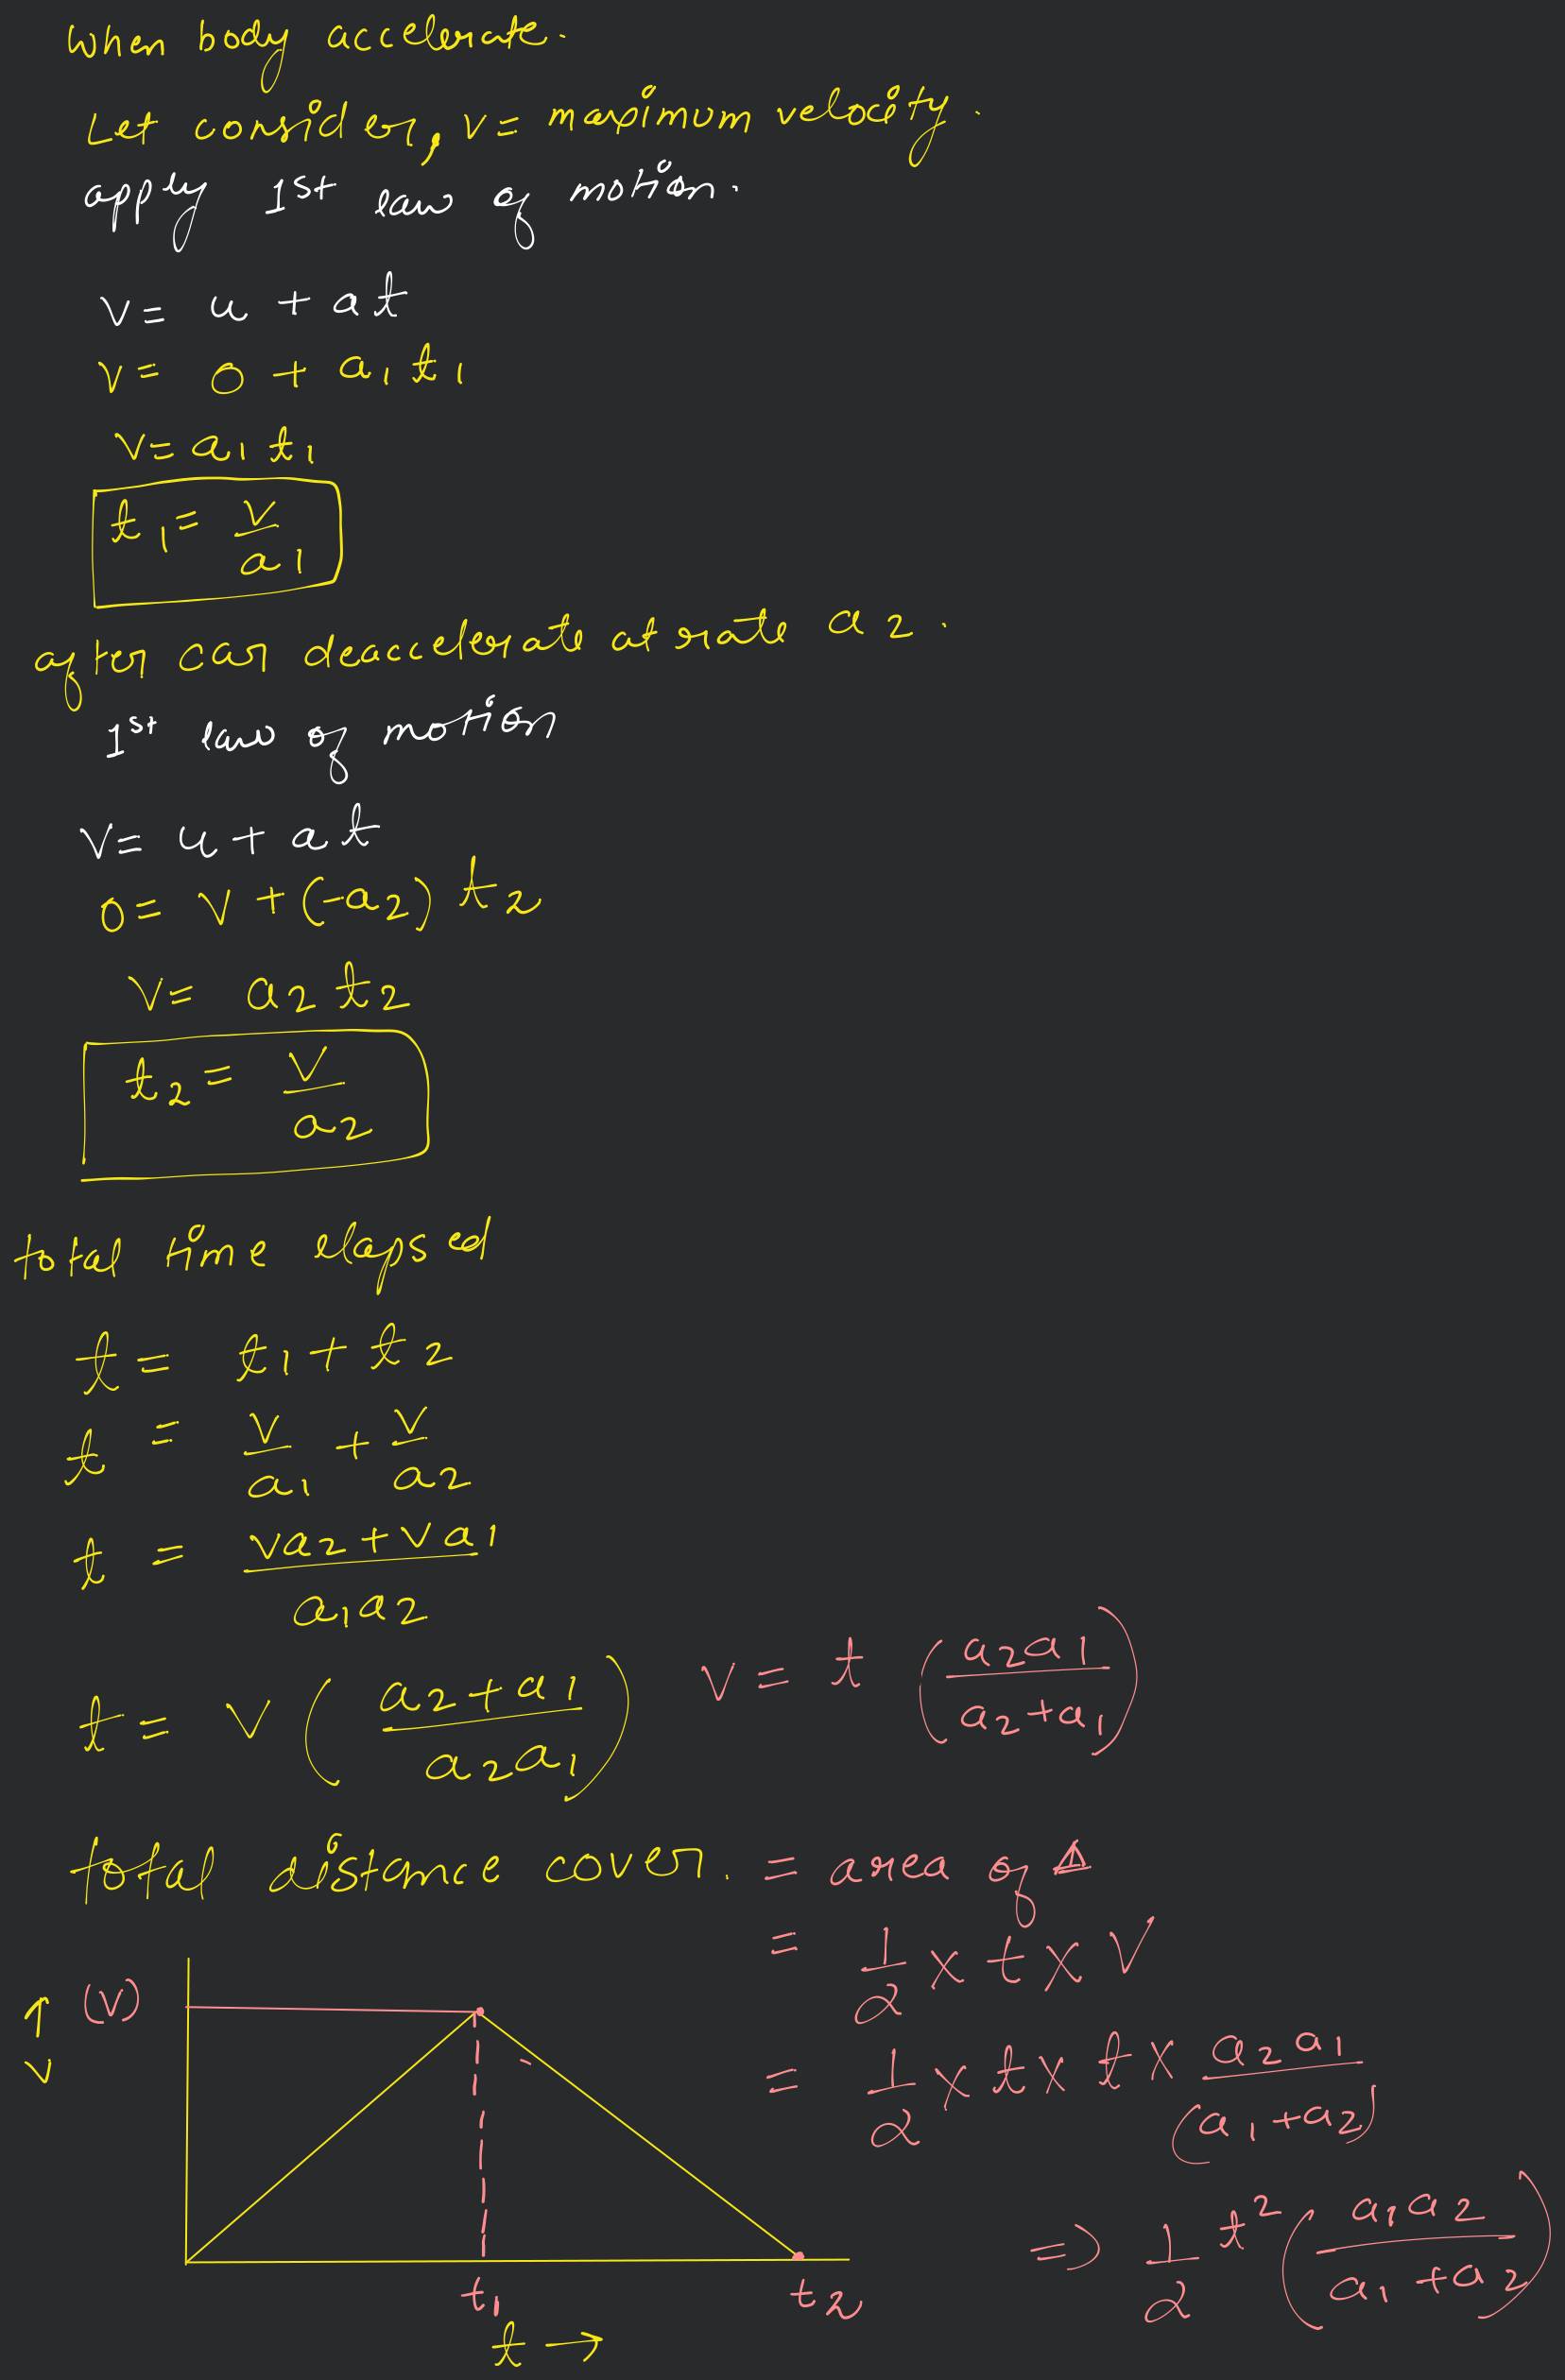 When body accelerate.
Let consider, v = maximum velocity.
apply 1st law of motion.
v = u + at
v = 0 + a1 t1
v = a1 t1
t1 = v/a1
after car deaccelerate at rate a2.
1st law of motion
v = u + at
0 = v + (-a2) t2
v = a2 t2
t2 = v/a2
total time elapsed
t = t1 + t2
t = v/a1 + v/a2
t = (va2 + va1)/(a1a2)
t = v ((a2+a1)/(a2a1)) v = t ((a2a1)/(a2+a1))
total distance cover. = area of Δ
= 1/2 × t × v
= 1/2 × t × t × a2a1/(a1+a2)
=> 1/2 t² (a1a2/(a1+a2))
(v)
↑
v
t1
t2
t →